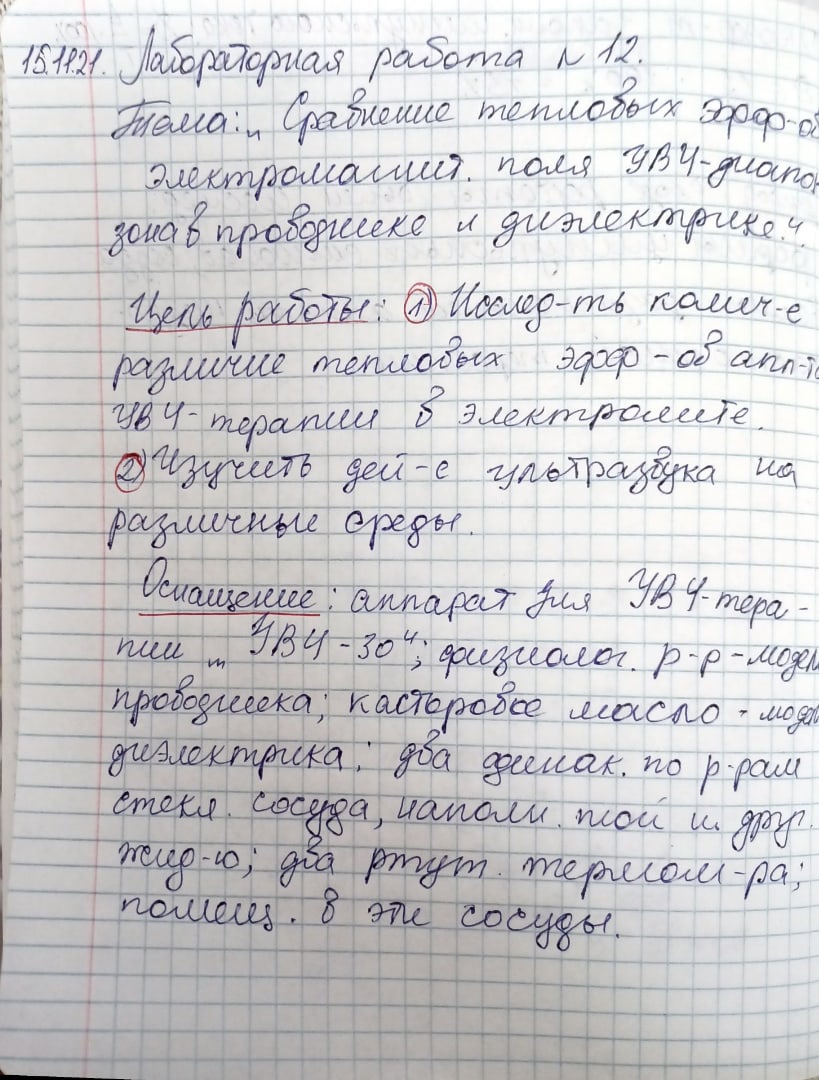 15.11.21. Лабораторная работа N 12.
Тема: „ Сравнение тепловых эфф-ов
электромагнит. поля УВЧ-диапо
зона в проводнике и диэлектрике“.
Цель работы: 1) Исслед-ть колич-е
различие тепловых эфф-ов апп-та
УВЧ-терапии в электролите.
2) Изучить дей-е ультразвука на
различные среды.
Оснащение: аппарат для УВЧ-тера-
пии „УВЧ-30“; физиолог. р-р-модел
проводника; касторовое масло - модел
диэлектрика; два одинак. по р-рам
стекл. сосуда, наполн. той и друг.
жид-ю; два ртут. термом-ра;
помещ. в эти сосуды.